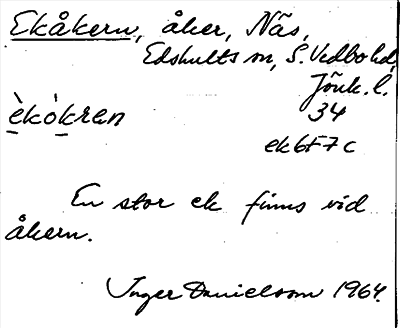 Ekåkern, åker, Näs,
Edshults sn, S. Vedbo hd,
Jönk. l.
34
èkòkren
ek 6F7c
En stor ek finns vid
åkern.
Inger Danielsson 1964.